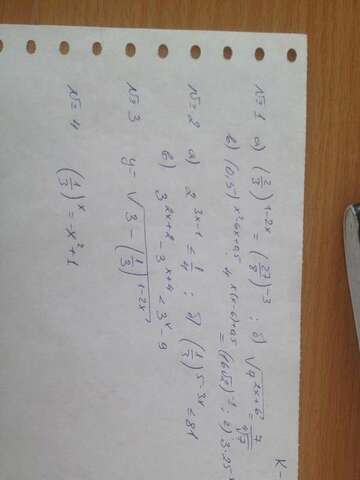 К-
№=1 а) (2/3)^{1-2x} = (27/8)^{-3} ; б) √4^{2x+6} =
в) (0,5)^{x²-6x+0,5} : 4^{x(x-6)+0,5} = (16√2)^{-1} ; г) 3·25^x
№=2 а) 2^{3x-1} ≤ 1/4 ; б) (1/3)^{5-3x} ≤ 81
в) 3^{2x+2} - 3^{x+4} < 3^x - 9
№=3 y = √3 - (1/3)^{1-2x}
№=4 (1/3)^x = -x²+1